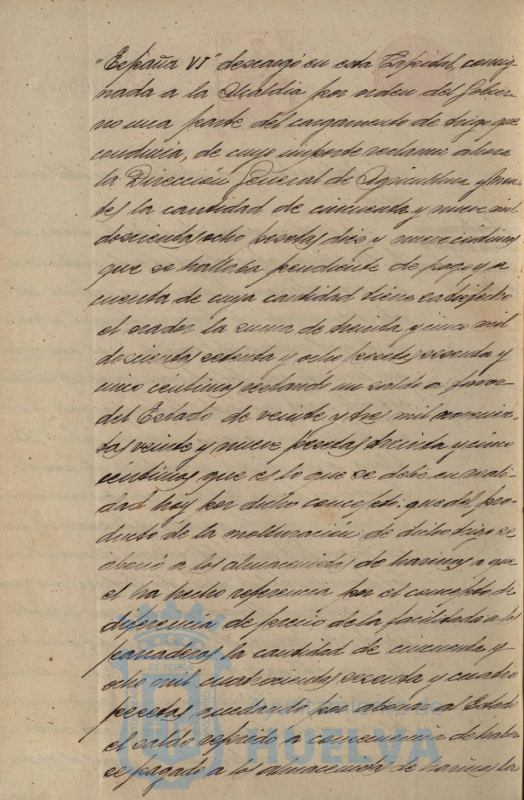 "España VI" descargó en esta Capital, consig-
nada a la Alcaldia por orden del Gobier-
no una parte del cargamento de trigo que
conducia, de cuyo importe reclama ahora
la Dirección General de Agricultura y Mon-
tes la cantidad de cincuenta y nueve mil
doscientas ocho pesetas diez y nueve centimos
que se hallaba pendiente de pago y a
cuenta de cuya cantidad tiene satisfecho
el orador la suma de treinta y cinco mil
doscientas setenta y ocho pesetas ochenta y
cinco centimos restando un saldo a favor
del Estado de veinte y tres mil novecien-
tas veinte y nueve pesetas treinta y cinco
centimos que es lo que se debe en reali-
dad hoy por dicho concepto: que del pro-
ducto de la molturación de dicho trigo se
abonó a los almacenistas de harinas a que
el ha hecho referencia por el concepto de
diferencia de precio de la facilitada a los
panaderos la cantidad de cincuenta y
ocho mil cuatrocientas sesenta y cuatro
pesetas quedando por abonar al Estado
el saldo referido a consecuencia de haber
se pagado a los almacenistas de harinas las
Ayuntamiento de
HUELVA